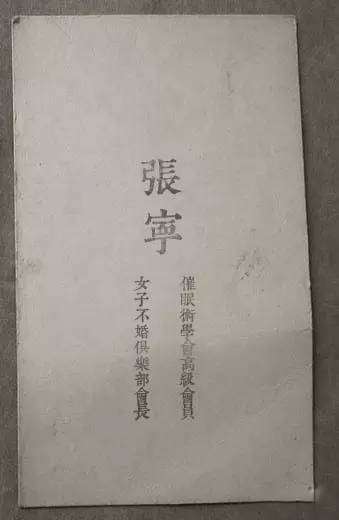 張寧
催眠術學會高級會員
女子不婚俱樂部會長